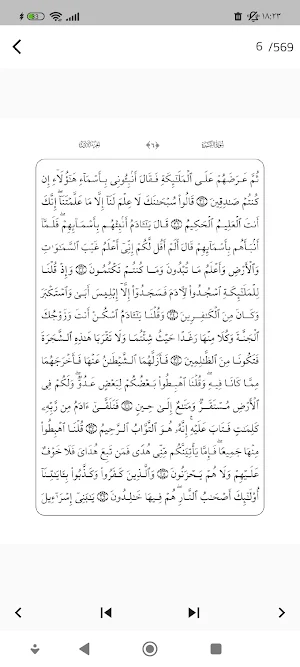 ١٨:٢٣
6 /569
﴿٦﴾
ثُمَّ عَرَضَهُمْ عَلَى الْمَلَٰٓئِكَةِ فَقَالَ أَنۢبِـُٔونِي بِأَسْمَآءِ هَٰٓؤُلَآءِ إِن
كُنتُمْ صَٰدِقِينَ ۝ قَالُوا۟ سُبْحَٰنَكَ لَا عِلْمَ لَنَآ إِلَّا مَا عَلَّمْتَنَآ إِنَّكَ
أَنتَ الْعَلِيمُ الْحَكِيمُ ۝ قَالَ يَٰٓـَٔادَمُ أَنۢبِئْهُم بِأَسْمَآئِهِمْ فَلَمَّآ
أَنۢبَأَهُم بِأَسْمَآئِهِمْ قَالَ أَلَمْ أَقُل لَّكُمْ إِنِّيٓ أَعْلَمُ غَيْبَ السَّمَٰوَٰتِ
وَالْأَرْضِ وَأَعْلَمُ مَا تُبْدُونَ وَمَا كُنتُمْ تَكْتُمُونَ ۝ وَإِذْ قُلْنَا
لِلْمَلَٰٓئِكَةِ اسْجُدُوا۟ لِـَٔادَمَ فَسَجَدُوٓا۟ إِلَّآ إِبْلِيسَ أَبَىٰ وَاسْتَكْبَرَ
وَكَانَ مِنَ الْكَٰفِرِينَ ۝ وَقُلْنَا يَٰٓـَٔادَمُ اسْكُنْ أَنتَ وَزَوْجُكَ
الْجَنَّةَ وَكُلَا مِنْهَا رَغَدًا حَيْثُ شِئْتُمَا وَلَا تَقْرَبَا هَٰذِهِ الشَّجَرَةَ
فَتَكُونَا مِنَ الظَّٰلِمِينَ ۝ فَأَزَلَّهُمَا الشَّيْطَٰنُ عَنْهَا فَأَخْرَجَهُمَا
مِمَّا كَانَا فِيهِ وَقُلْنَا اهْبِطُوا۟ بَعْضُكُمْ لِبَعْضٍ عَدُوٌّ وَلَكُمْ فِي
الْأَرْضِ مُسْتَقَرٌّ وَمَتَٰعٌ إِلَىٰ حِينٍ ۝ فَتَلَقَّىٰٓ ءَادَمُ مِن رَّبِّهِۦ
كَلِمَٰتٍ فَتَابَ عَلَيْهِ إِنَّهُۥ هُوَ التَّوَّابُ الرَّحِيمُ ۝ قُلْنَا اهْبِطُوا۟
مِنْهَا جَمِيعًا فَإِمَّا يَأْتِيَنَّكُم مِّنِّي هُدًى فَمَن تَبِعَ هُدَايَ فَلَا خَوْفٌ
عَلَيْهِمْ وَلَا هُمْ يَحْزَنُونَ ۝ وَالَّذِينَ كَفَرُوا۟ وَكَذَّبُوا۟ بِـَٔايَٰتِنَآ
أُو۟لَٰٓئِكَ أَصْحَٰبُ النَّارِ هُمْ فِيهَا خَٰلِدُونَ ۝ يَٰبَنِيٓ إِسْرَٰٓءِيلَ